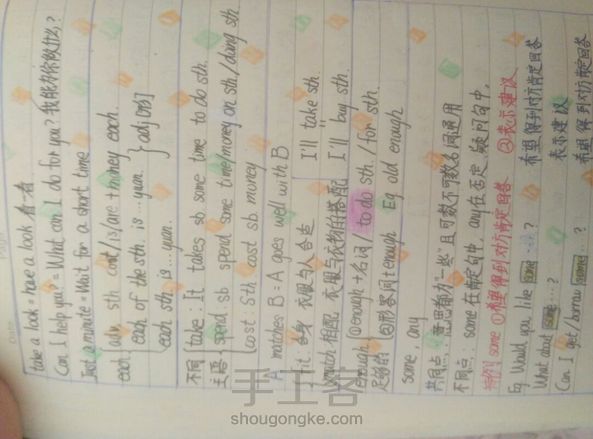 take a look = have a look 看一看
Can I help you? = What can I do for you? 我能为你做什么?
Just a minute = Wait for a short time
each adv. sth cost/is/are + money each.
each of the sth. is … yuan.
each sth is … yuan. adj
不同 take : It takes sb some time to do sth.
主语 spend sb spend some time/money on sth./doing sth
cost : Sth cost sb money
A matches B = A goes well with B
fit 合身 衣服与人合适 I'll take sth
match 相配 衣服与衣物的搭配 I'll buy sth.
enough ① enough + 名词 / to do sth. / for sth.
足够的 ②形容词 + enough Eg old enough
some, any
共同点: 意思都为“一些”且可数不可数名词通用
不同点: some 在肯定句中, any在否定、疑问句中,
特例 some ①希望得到对方肯定回答 ②表示建议
Eg Would you like some …? 希望得到对方肯定回答
What about some …? 表示建议
Can I get/borrow some …? 希望得到对方肯定回答
手工客
shougongke.com